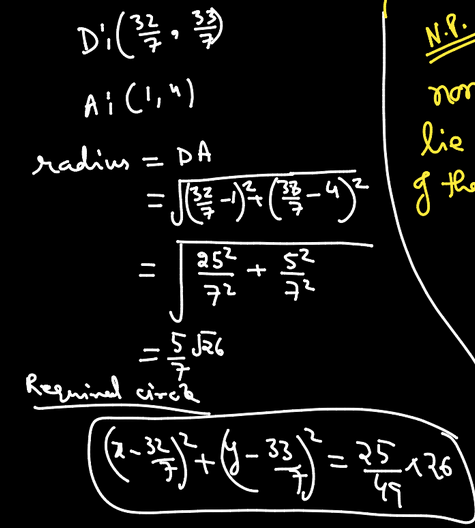 D:(32/7, 33/7)
A:(1,4)
radius = DA
= √((32/7 -1)² + (33/7 - 4)²)
= √(25²/7² + 5²/7²)
= 5/7 √26
Required circle
(x - 32/7)² + (y - 33/7)² = 25/49 × 26
N.P.
nor
lie
of the